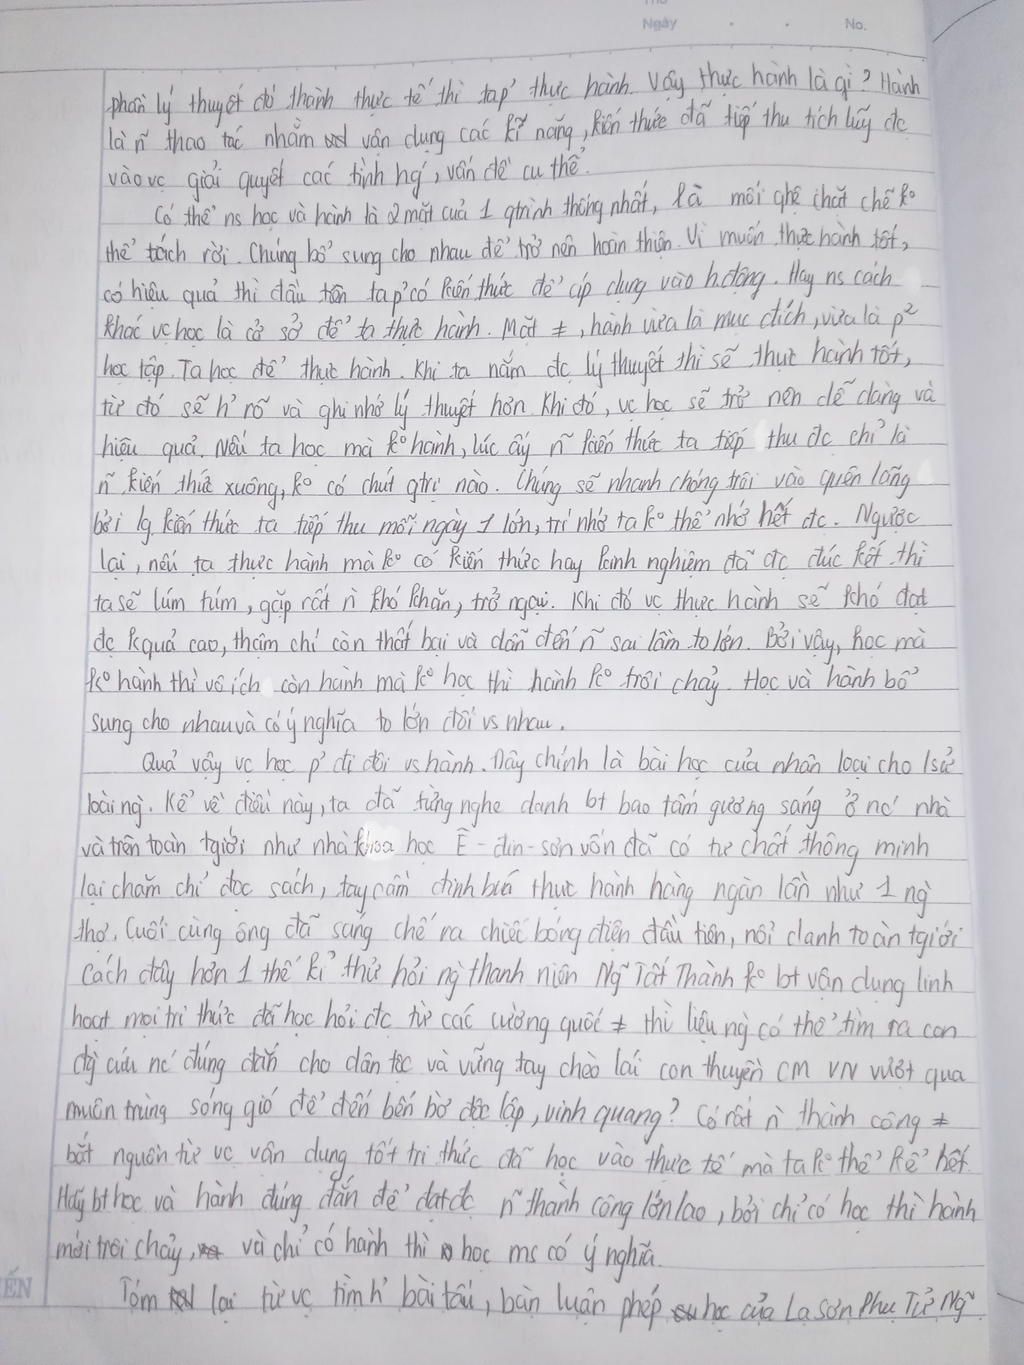 Thứ
Ngày . . No.
phần lý thuyết đó thành thực tế thì ta p' thực hành. Vậy thực hành là gì? Hành
là ~n thao tác nhằm vận dụng các kĩ năng, kiến thức đã tiếp thu tích lũy đc
vào vc giải quyết các tình hg', vấn đề cụ thể.
Có thể ns học và hành là 2 mặt của 1 qtrình thống nhất, là mối qhệ chặt chẽ k°
thể tách rời. Chúng bổ sung cho nhau để trở nên hoàn thiện. Vì muốn thực hành tốt,
có hiệu quả thì đầu tiên ta p' có kiến thức để áp dụng vào h.động. Hay ns cách
khác vc học là cở sở để ta thực hành. Mặt ≠, hành vừa là mục đích, vừa là p²
học tập. Ta học để thực hành. Khi ta nắm đc lý thuyết thì sẽ thực hành tốt,
từ đó sẽ h' rõ và ghi nhớ lý thuyết hơn. Khi đó, vc học sẽ trở nên dễ dàng và
hiệu quả. Nếu ta học mà k° hành, lúc ấy ~n kiến thức ta tiếp thu đc chỉ là
~n kiến thức xuông, k° có chút gtrị nào. Chúng sẽ nhanh chóng trôi vào quên lãng
bởi lg kiến thức ta tiếp thu mỗi ngày 1 lớn, trí nhớ ta k° thể nhớ hết đc. Ngược
lại, nếu ta thực hành mà k° có kiến thức hay kinh nghiệm đã đc đúc kết thì
ta sẽ lúm túm, gặp rất ǹ khó khăn, trở ngại. Khi đó vc thực hành sẽ khó đạt
đc kquả cao, thậm chí còn thất bại và dẫn đến ~n sai lầm to lớn. Bởi vậy, học mà
k° hành thì vô ích còn hành mà k° học thì hành k° trôi chảy. Học và hành bổ
sung cho nhau và có ý nghĩa to lớn đối vs nhau.
Quả vậy vc học p' đi đôi vs hành. Đây chính là bài học của nhân loại cho lsử
loài ng̀. Kể về điều này, ta đã từng nghe danh bt bao tấm gương sáng ở nc' nhà
và trên toàn tgiới như nhà khoa học Ê-đin-sơn vốn đã có tư chất thông minh
lại chăm chỉ đọc sách, tay cầm đinh búa thực hành hàng ngàn lần như 1 ng̀
thợ. Cuối cùng ông đã sáng chế ra chiếc bóng điện đầu tiên, nổi danh toàn tgiới
Cách đây hơn 1 thế kỉ thử hỏi ng̀ thanh niên Ng~ Tất Thành k° bt vận dụng linh
hoạt mọi tri thức đã học hỏi đc từ các cường quốc ≠ thì liệu ng̀ có thể tìm ra con
đg̀ cứu nc' đúng đắn cho dân tộc và vững tay chèo lái con thuyền CM VN vượt qua
muôn trùng sóng gió để đến bến bờ độc lập, vinh quang? Có rất ǹ thành công ≠
bắt nguồn từ vc vận dụng tốt tri thức đã học vào thực tế mà ta k° thể kể hết.
Hãy bt học và hành đúng đắn để đạt đc ~n thành công lớn lao, bởi chỉ có học thì hành
mới trôi chảy, và chỉ có hành thì học ms có ý nghĩa.
Tóm lại từ vc tìm h' bài tấu, bàn luận phép học của La Sơn Phu Tử Ng~